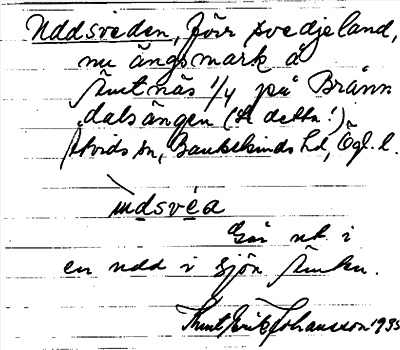 Uddsveden, förr svedjeland,
nu ängsmark å
Rimtnäs 1/4 på Bränn
dalsängen (se detta!)
Atvids sn, Bankekinds hd, Ögl. l.
uddsvéa
Går ut i
en udd i sjön
Knut Erik Johansson 1935